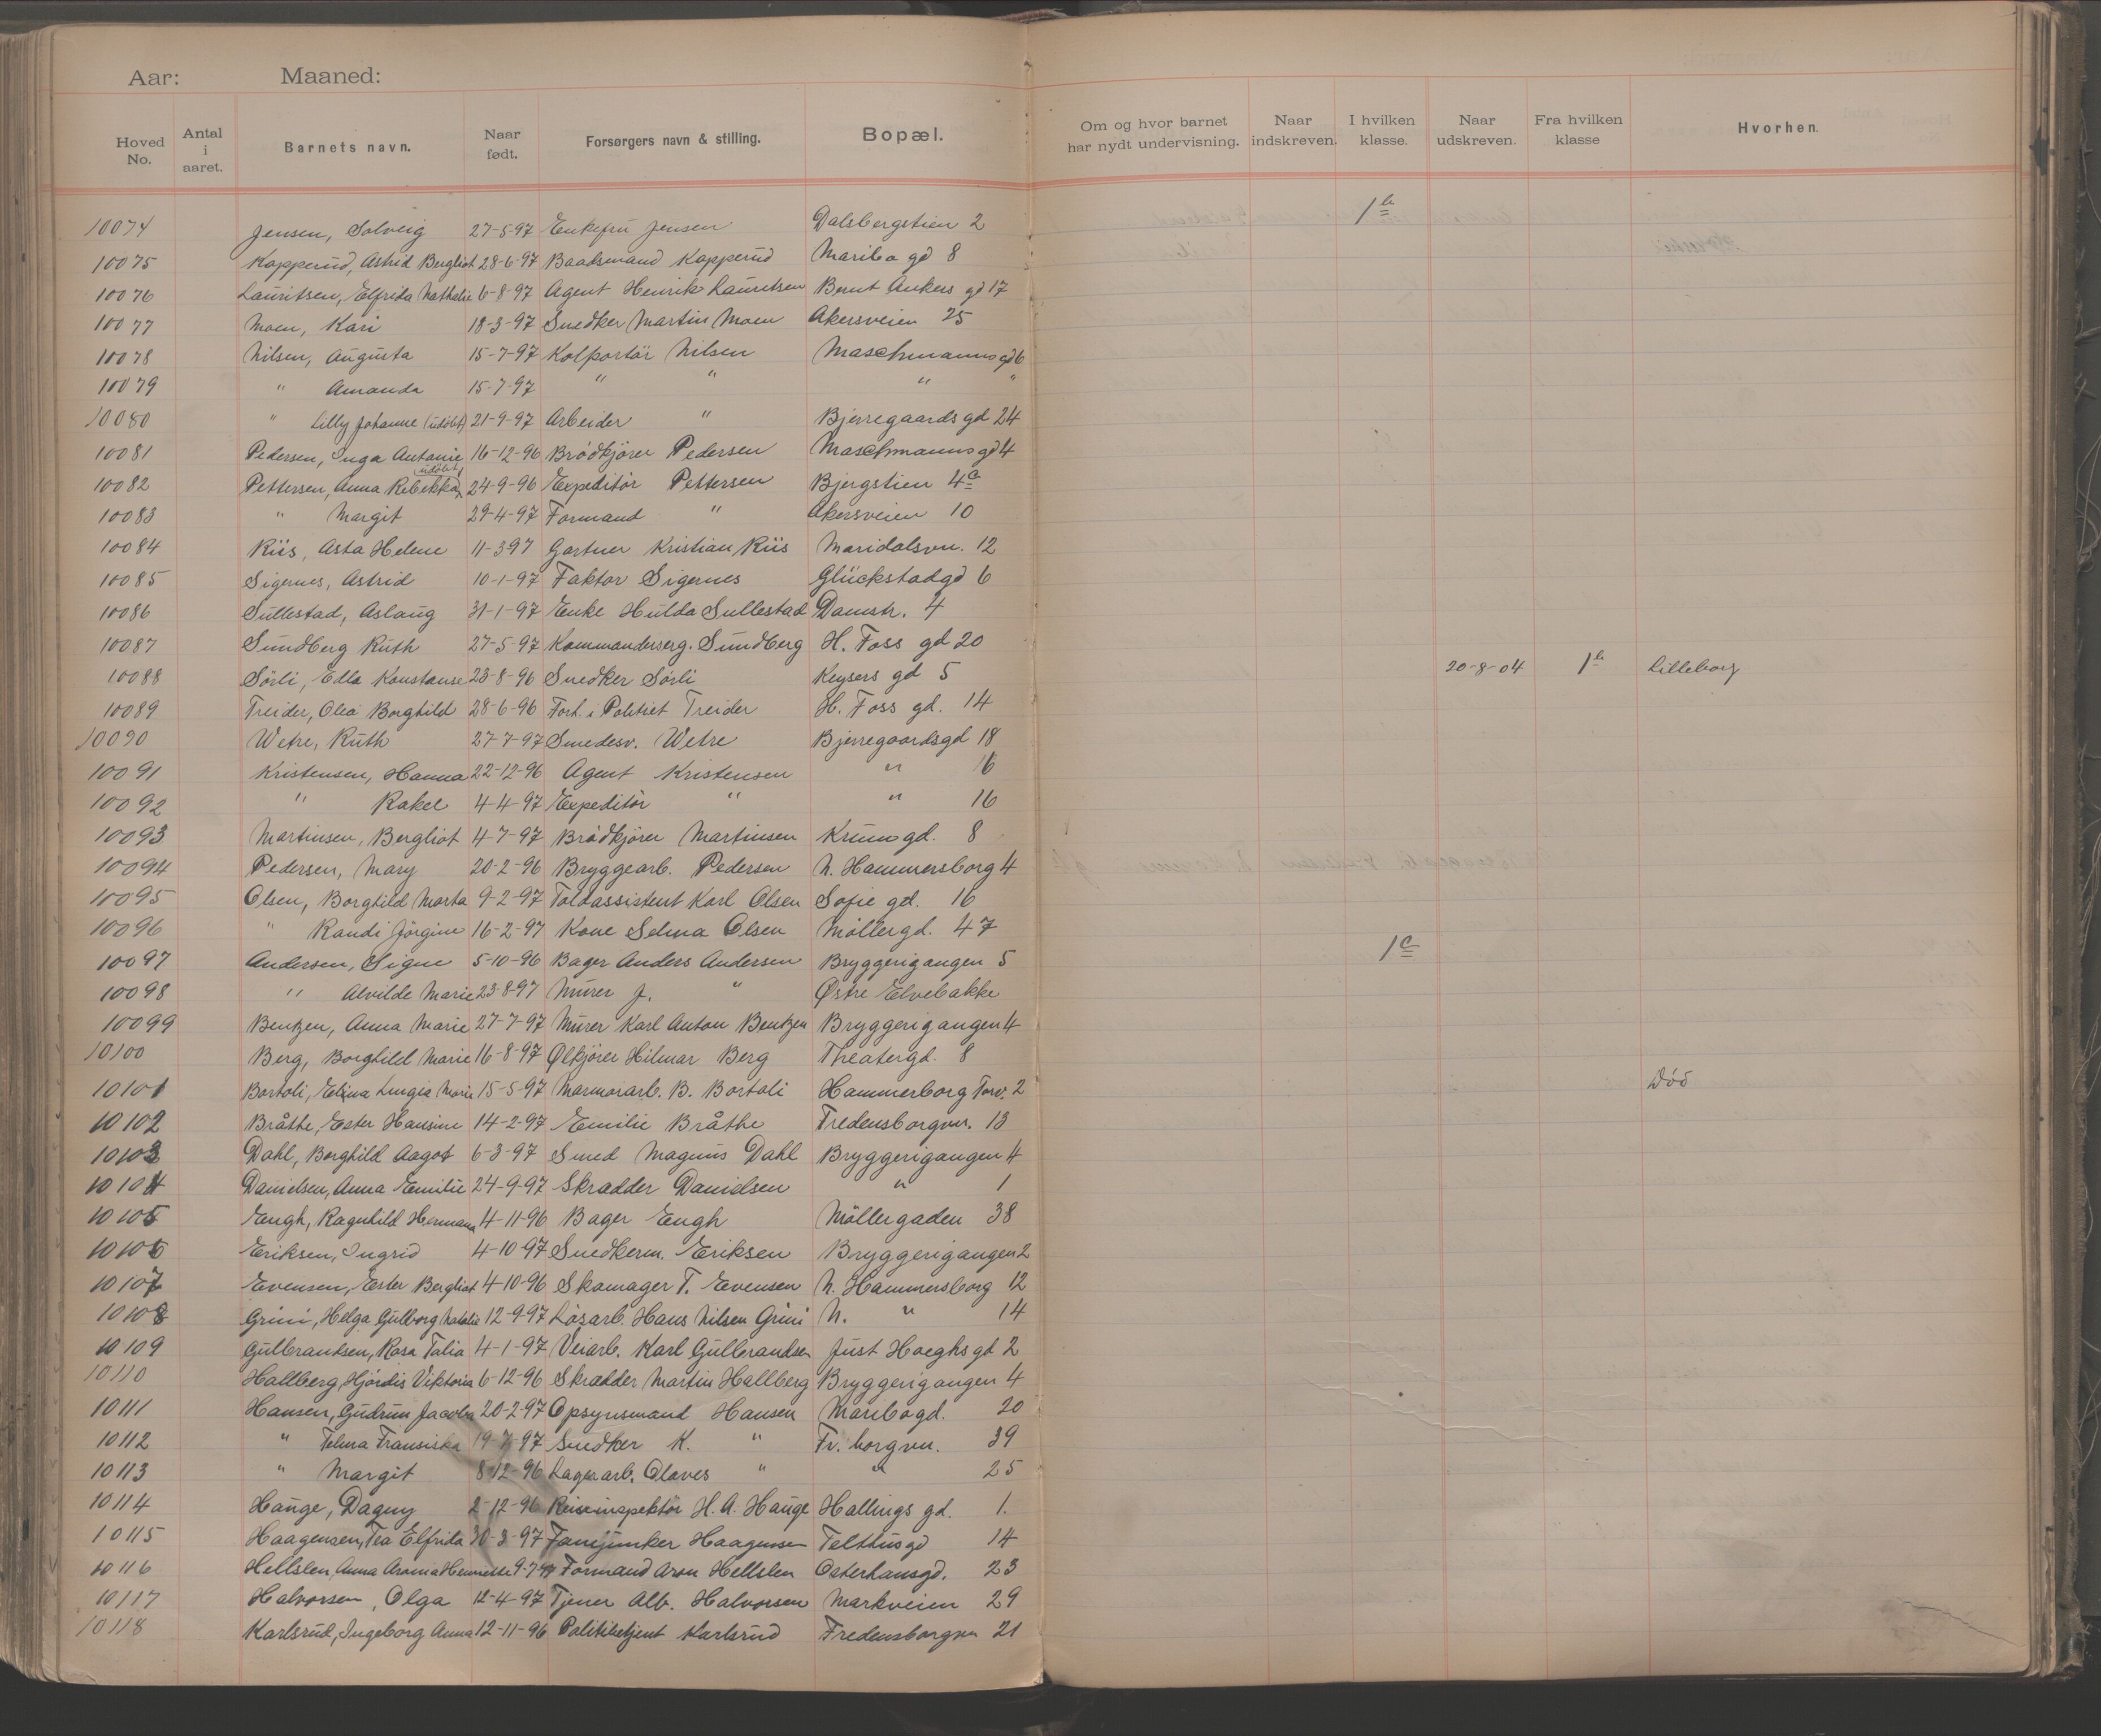 Aar: Maaned:
Hoved No. Antal i aaret. Barnets navn. Naar født. Forsørgers navn & stilling. Bopæl. Om og hvor barnet har nydt undervisning. Naar indskreven. I hvilken klasse. Naar udskreven. Fra hvilken klasse Hvorhen.
10074 Jensen, Solveig 27-5-97 Enkefru Jensen Dalsbergstien 2 1b
10075 Kopperud, Astrid Bergliot 28-6-97 Baadsmand Kopperud Maribo gd 8
10076 Lauritsen, Elfrida Nathalie 6-8-97 Agent Henrik Lauritsen Bernt Ankers gd 17
10077 Moen, Kari 18-3-97 Snedker Martin Moen Akersveien 25
10078 Nilsen, Augusta 15-7-97 Kolportör Nilsen Maschmanns gd 6
10079 " Amanda 15-7-97 " " " "
10080 " Lilly Johanne (udöbt) 21-9-97 Arbeider " Bjerregaards gd 24
10081 Pedersen, Inga Antonie 16-12-96 Brödkjörer Pedersen Maschmanns gd 4
10082 Pettersen, Anna Rebekka (udöbt) 24-9-96 Expeditör Pettersen Bjergstien 4a
10083 " Margit 29-4-97 Formand " Akersveien 10
10084 Riis, Asta Helene 11-3-97 Gartner Kristian Riis Maridalsvn. 12
10085 Sigernes, Astrid 10-1-97 Faktor Sigernes Glückstadgd 6
10086 Sullestad, Aslaug 31-1-97 Enke Hulda Sullestad Damstr. 4
10087 Sundberg Ruth 27-5-97 Kommanderserg. Sundberg H. Foss gd 20
10088 Sörli, Edla Konstanse 23-8-96 Snedker Sörli Keysers gd 5 20-8-04 1b Lilleborg
10089 Treider, Olea Borghild 28-6-96 Forh. i Politiet Treider H. Foss gd. 14
10090 Wetre, Ruth 27-7-97 Smedesv. Wetre Bjerregaardsgd 18
10091 Kristensen, Hanna 22-12-96 Agent Kristensen " 16
10092 " Rakel 4-4-97 Expeditör " " 16
10093 Martinsen, Bergliot 4-7-97 Brödkjörer Martinsen Krumgd. 8
10094 Pedersen, Mary 20-2-96 Bryggearb. Pedersen N. Hammersborg 4
10095 Olsen, Borghild Marta 9-2-97 Toldassistent Karl Olsen Sofie gd. 16
10096 " Randi Jörgine 16-2-97 Kone Selma Olsen Möllergd. 47
10097 Andersen, Signe 5-10-96 Bager Anders Andersen Bryggerigangen 5 1c
10098 " Alvilde Marie 23-8-97 Murer J. " Østre Elvebakke
10099 Bentzen, Anna Marie 27-7-97 Murer Karl Anton Bentzen Bryggerigangen 4
10100 Berg, Borghild Marie 16-8-97 Ølkjörer Hilmar Berg Theatergd. 8
10101 Bortoli, Elina Marie 15-5-97 Marmorarb. B. Bortoli Hammerborg Torv. 2 Död
10102 Bråthe, Ester Hansine 14-2-97 Emilie Bråthe Fredensborgvn. 13
10103 Dahl, Borghild Aagot 6-3-97 Smed Magnus Dahl Bryggerigangen 4
10104 Danielsen, Anna Emilie 24-9-97 Skradder Danielsen " 1
10105 Engh, Ragnhild Hermana 4-11-96 Bager Engh Möllergaden 38
10106 Eriksen, Ingrid 4-10-97 Snedkerm. Eriksen Bryggerigangen 2
10107 Evensen, Ester Bergliot 4-10-96 Skomager T. Evensen N. Hammersborg 12
10108 Grini, Helga Gulborg Natalie 12-9-97 Lösarb. Hans Nilsen Grini N. " 14
10109 Gulbrandsen, Rosa Talia 4-1-97 Veiarb. Karl Gulbrandsen Just Hoeghs gd 2
10110 Hallberg, Hjördis Viktoria 6-12-96 Skradder Martin Hallberg Bryggerigangen 4
10111 Hansen, Gudrun Jacoba 20-2-97 Opsynsmand Hansen Maribogd. 20
10112 " Telma Fransiska 19-7-97 Snedker K. " Fr. borgvn. 39
10113 " Margit 8-12-96 Lagerarb. Olaves " " 25
10114 Hauge, Dagny 2-12-96 Reiseinspektör H. A. Hauge Hallings gd. 1.
10115 Haagensen, Tea Elfrida 30-3-97 Fanejunker Haagensen Telthusgd 14
10116 Hellslen, Anna Aronia Henriette 9-7-97 Formand Aron Hellslen Osterhausgd. 23
10117 Halvorsen, Olga 12-4-97 Tjener Alb. Halvorsen Markveien 29
10118 Karlsrud, Ingeborg Anna 12-11-96 Politibetjent Karlsrud Fredensborgvn 21